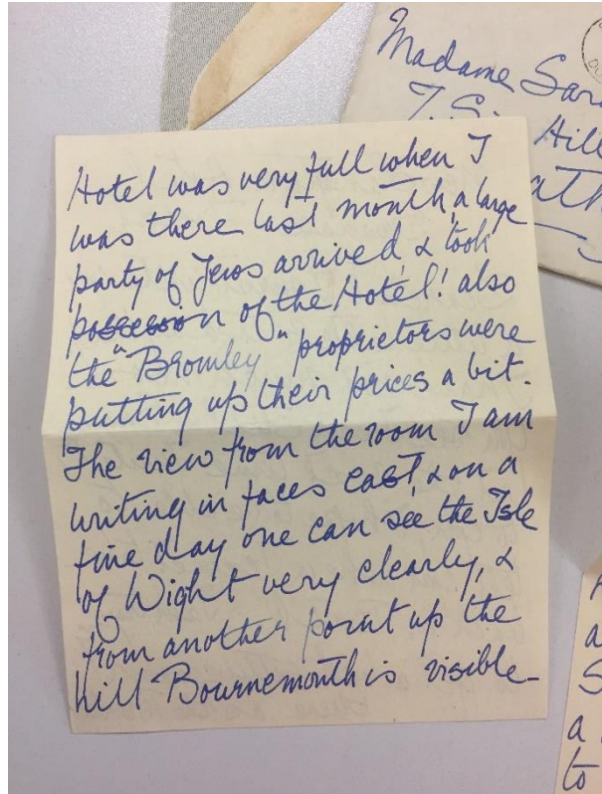 Madame
Hill
Hotel was very full when I
was there last month, a large
party of Jews arrived, & took
possession of the Hotel! also
the "Bromley" proprietors were
putting up their prices a bit.
The view from the room I am
writing in faces east, & on a
fine day one can see the Isle
of Wight very clearly, &
from another point up the
hill Bournemouth is visible –
a
to